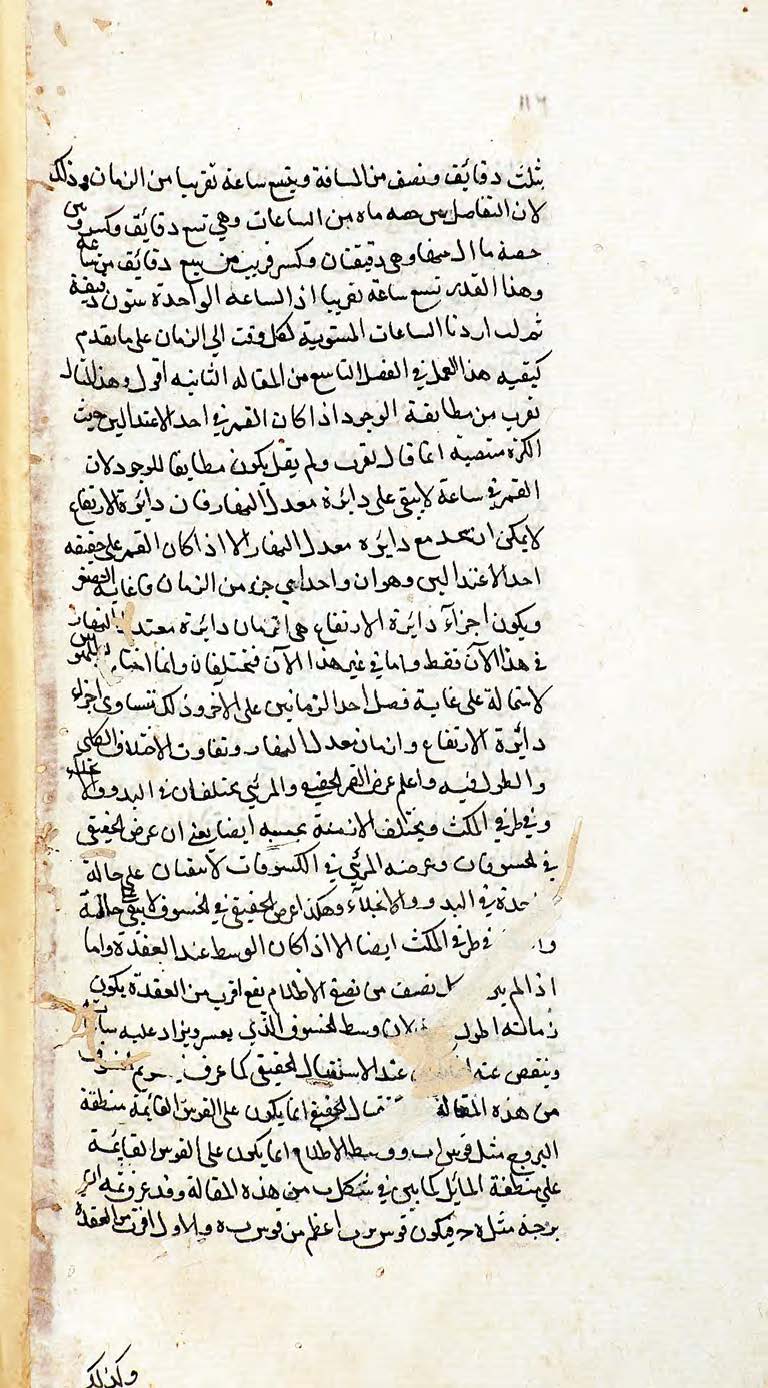 ١١٦
بثلث دقائق ونصف من المسافة وبتسع ساعة تقريبا من الزمان وذلك
لان التفاصل بين حصه ماه من الساعات وهي تسع دقايق وكسر وبين
حصة ما الى وهي دقيقتان وكسر قريب من سبع دقايق من ساعة
وهذا القدر تسع ساعة تقريبا اذ الساعه الواحدة ستون دقيقة
ثم اردنا الساعات المستوية لكل وقت الى الزمان على ما تقدم
كيفيه هذا العمل في الفصل التاسع من المقاله الثانيه اقول وهذا المثال
تقرب من مطابقة الوجود اذا كان القمر في احد الاعتدالين حيث
الكرة منتصبة انما قال تقرب ولم يقل يكون مطابقا للوجود لان
القمر في ساعة لا يبقى على دايرة معدل النهار فان دايرة الارتفاع
لا يمكن ان تتحد مع دايره معدل النهار الا اذا كان القمر على حقيقه
احد الاعتدالين وهو ان واحد اي جزء من الزمان في غاية الصغر
ويكون اجزآء دايرة الارتفاع هي ازمان دايرة معدل النهار
في هذا الآن فقط واما في غير هذا الآن فمختلفان وانما اختار
لاشتماله على غاية فصل احد الزمانين على الاخر وذلك تتساوى اجزاء
دائرة الارتفاع وازمان معدل النهار وتفاوت الاختلاف الكلى
والطول فيه واعلم عرض القمر الحقيقي والمرئي يختلفان في البدو والانجلاء
وفي طرفي المكث ويختلف الازمنة بحسبه ايضا يعنى ان عرض الحقيقى
في الخسوفات وعرضه المرئي في الكسوفات لا يبقيان على حالة
حدة في البدو والانجلآء وهكذا عرض الحقيقى في الخسوف لا يبقى على حالة
في طرفي المكث ايضا الا اذا كان الوسط عند العقدة واما
اذا لم نصف من نصفي الاظلام يقع اقرب من العقدة يكون
زمانه اطول لان وسط الخسوف الذي يعسر ويزاد عليه
وينقص عنه عند الاستقبال الحقيقى كما عرف
من هذه المقالة الحقيقي انما يكون على القوس القائمة منطقة
البروج مثل قوس اب ووسط الاظلام انما يكون على القوس القائمة
على منطقة المايل كما بين في شكل ب من هذه المقالة وقد عرفت
فيكون قوس اعظم من قوس والاول اقرب من العقدة
وكذلك